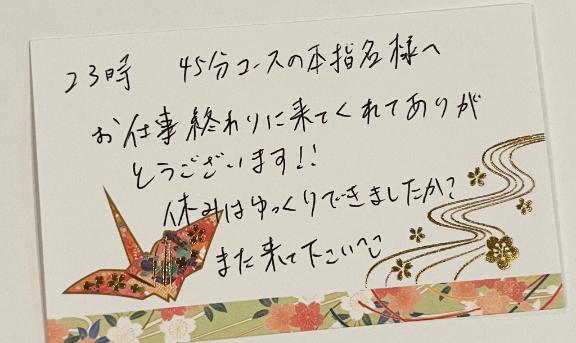 23時 45分コースの本指名様へ
お仕事終わりに来てくれてありが
とうございます!!
休みはゆっくりできましたか?
また来て下さい